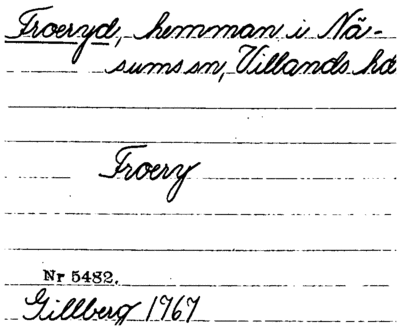 Froeryd, hemman i Nä-
sums sn, Villands hd
Froery
Nr 5482.
Gillberg 1767